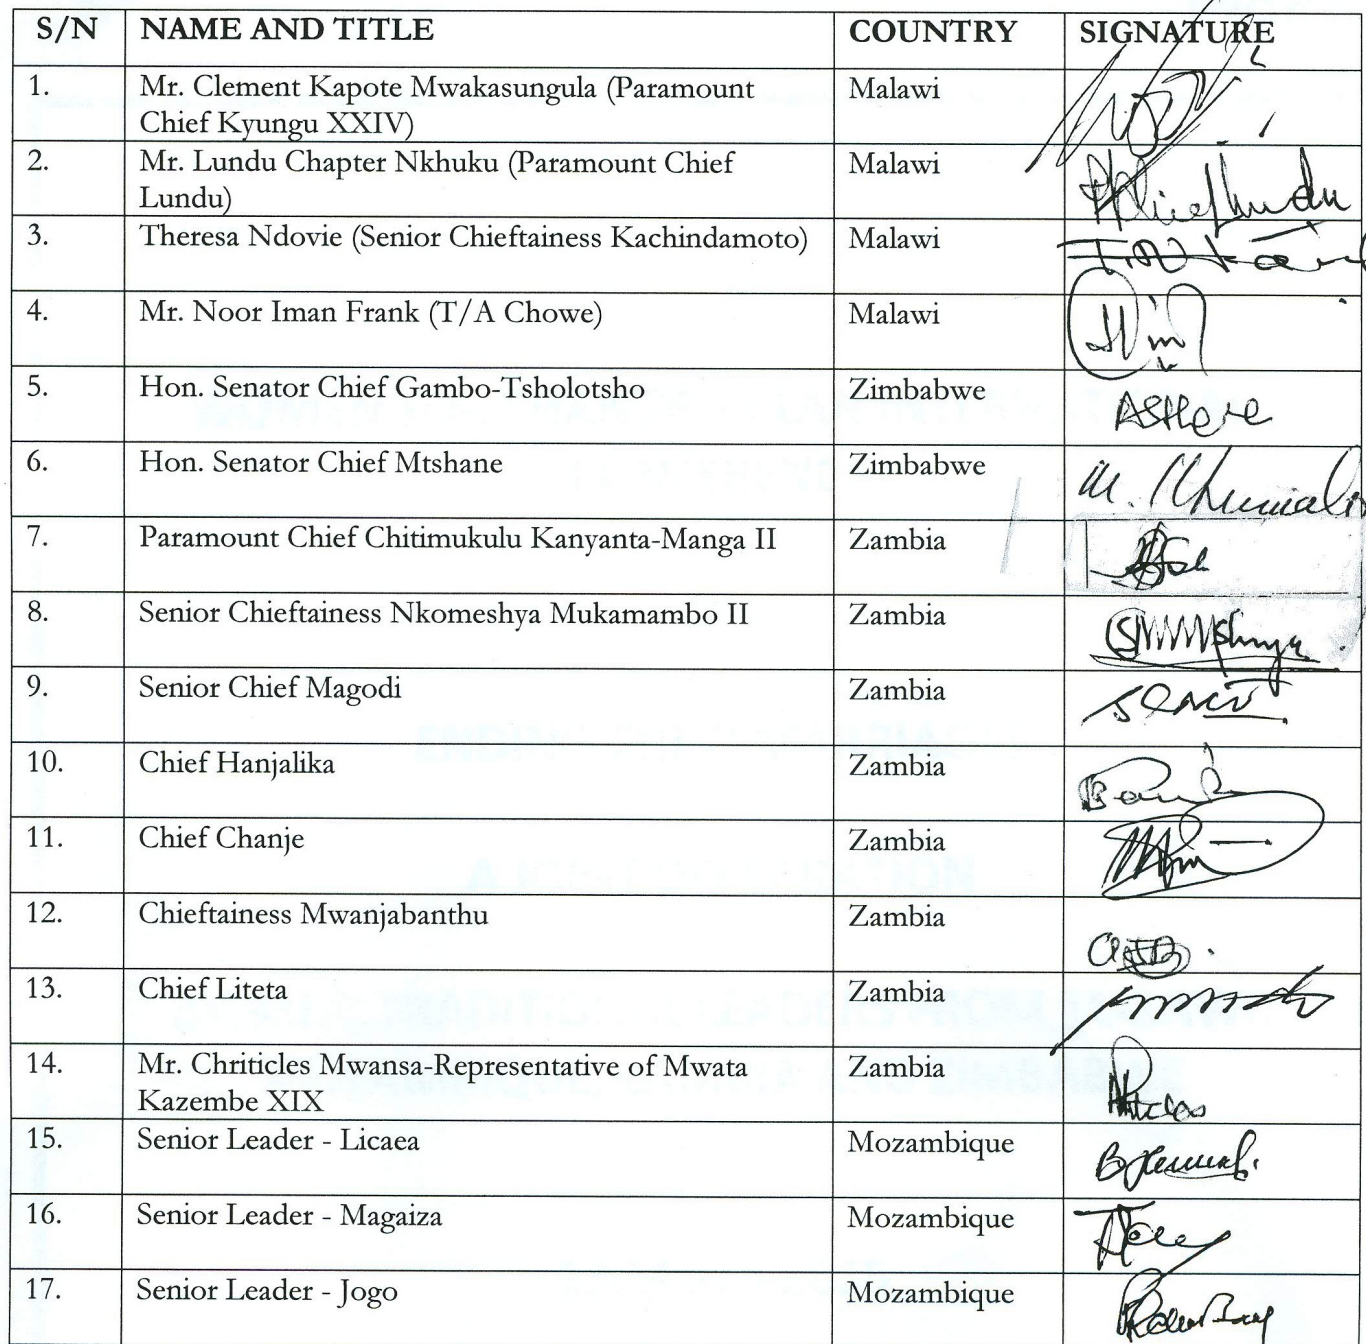 S/N NAME AND TITLE COUNTRY SIGNATURE
1. Mr. Clement Kapote Mwakasungula (Paramount Malawi
Chief Kyungu XXIV)
2. Mr. Lundu Chapter Nkhuku (Paramount Chief Malawi
Lundu)
3. Theresa Ndovie (Senior Chieftainess Kachindamoto) Malawi
4. Mr. Noor Iman Frank (T/A Chowe) Malawi
5. Hon. Senator Chief Gambo-Tsholotsho Zimbabwe
6. Hon. Senator Chief Mtshane Zimbabwe
7. Paramount Chief Chitimukulu Kanyanta-Manga II Zambia
8. Senior Chieftainess Nkomeshya Mukamambo II Zambia
9. Senior Chief Magodi Zambia
10. Chief Hanjalika Zambia
11. Chief Chanje Zambia
12. Chieftainess Mwanjabanthu Zambia
13. Chief Liteta Zambia
14. Mr. Chriticles Mwansa-Representative of Mwata Zambia
Kazembe XIX
15. Senior Leader - Licaea Mozambique
16. Senior Leader - Magaiza Mozambique
17. Senior Leader - Jogo Mozambique